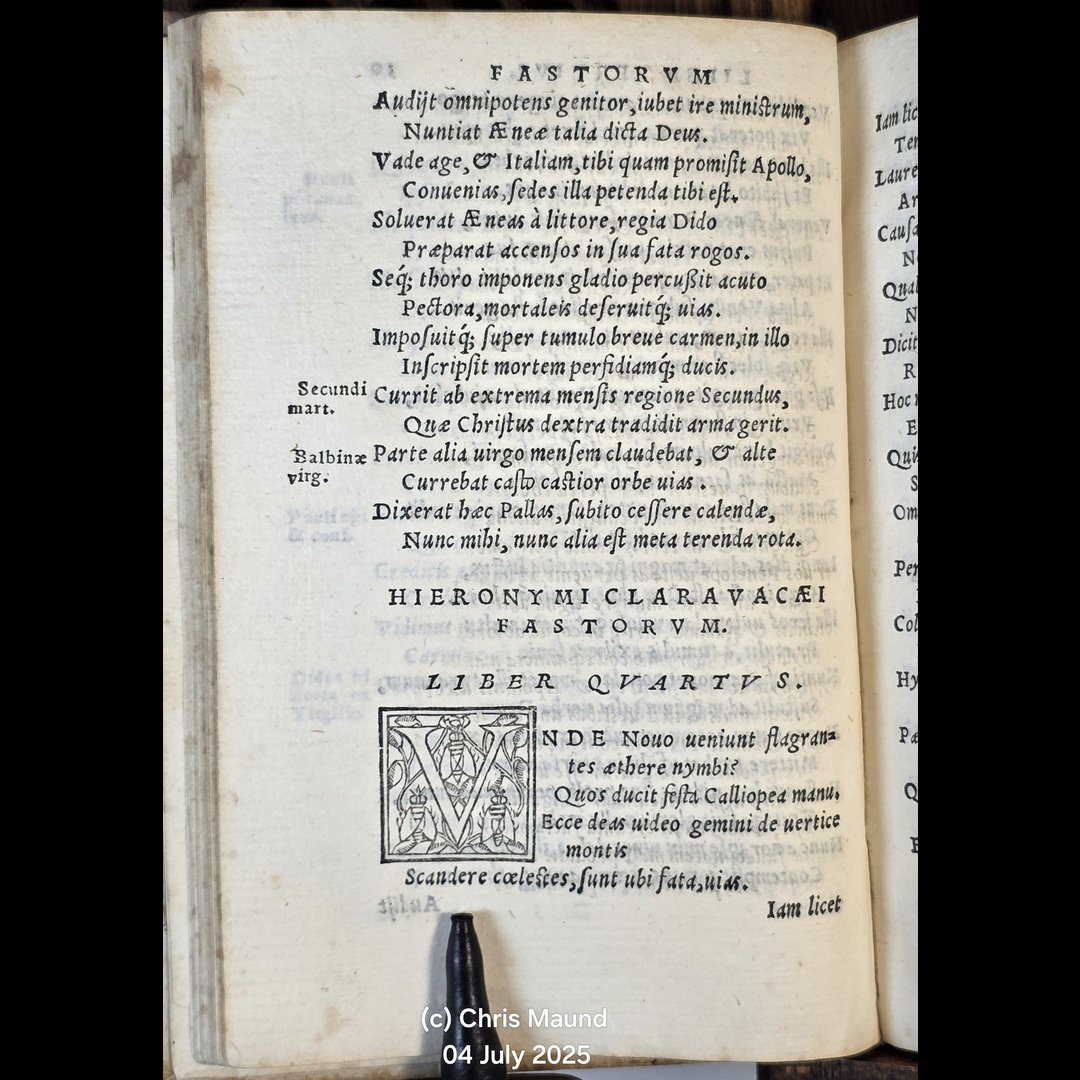 FASTORVM
Audijt omnipotens genitor, iubet ire ministrum,
Nuntiat Æneæ talia dicta Deus.
Vade age, & Italiam, tibi quam promiſit Apollo,
Conuenias, ſedes illa petenda tibi eſt.
Soluerat Æneas à littore, regia Dido
Præparat accenſos in ſua fata rogos.
Seq́; thoro imponens gladio percußit acuto
Pectora, mortaleis deſeruitq́; uias.
Impoſuitq́; ſuper tumulo breue carmen, in illo
Inſcripſit mortem perfidiamq́; ducis.
Secundi mart.
Currit ab extrema menſis regione Secundus,
Quæ Chriſtus dextra tradidit arma gerit.
Balbinæ virg.
Parte alia uirgo menſem claudebat, & alte
Currebat caſto caſtior orbe uias.
Dixerat hæc Pallas, ſubito ceſſere calendæ,
Nunc mihi, nunc alia eſt meta terenda rota.
HIERONYMI CLARAVACÆI
FASTORVM.
LIBER QVARTVS.
VNDE Nouo ueniunt flagran-
tes æthere nymbi?
Quos ducit feſta Calliopea manu.
Ecce deas uideo gemini de uertice
montis
Scandere cœleſtes, ſunt ubi fata, uias.
Iam licet
Iam lic
Ter
Laure
Ar
Cauſa
N
Qual
N
Dicit
R
Hoc
E
Qui
S
Om
Per
Col
Hy
Pæ
Q
(c) Chris Maund
04 July 2025